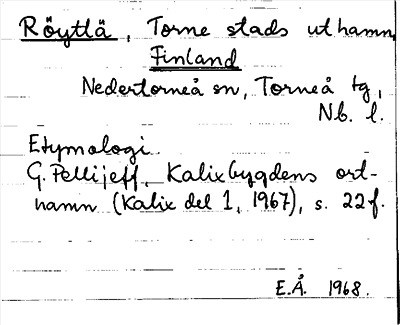 Röyttä, Torne stads uthamn,
Finland
Nedertorneå sn, Torneå tg,
Nb. l.
Etymologi
G. Pellijeff, Kalixbygdens ort-
namn (Kalix del 1, 1967), s. 22f.
E.Å. 1968.